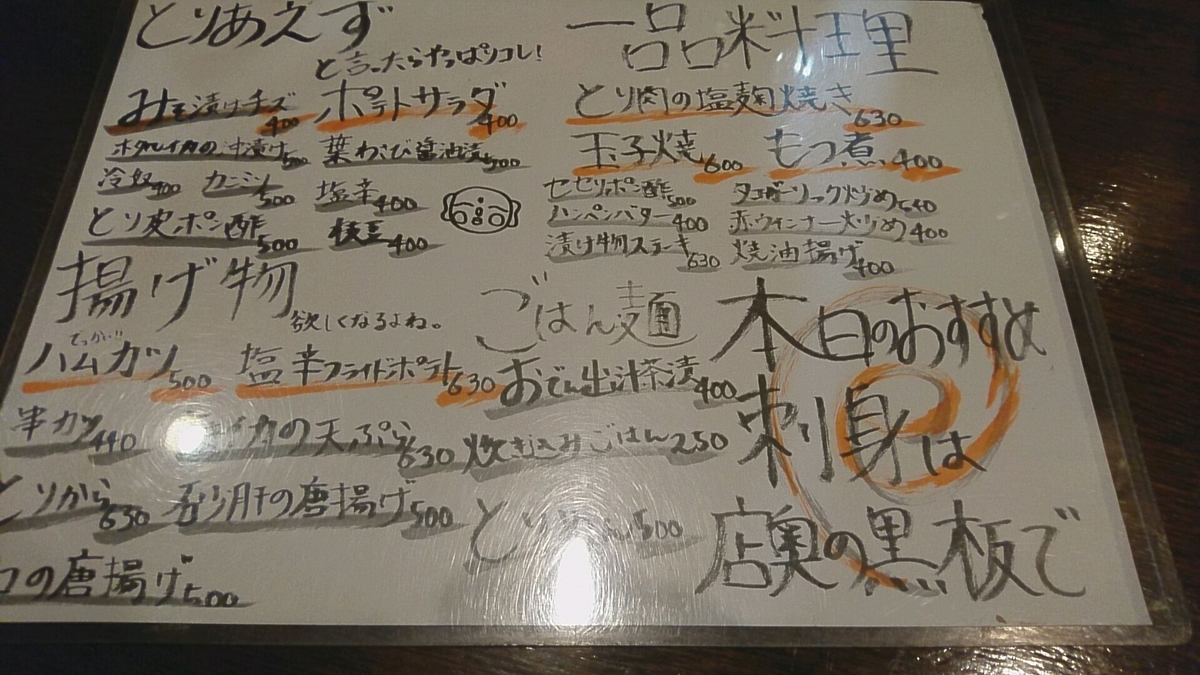 とりあえず
と言ったらやっぱりコレ!
みそ漬けチーズ 400 ポテトサラダ 400
ホタルイカの沖漬け 500 葉わさび醤油漬 500
冷奴 400 カニミソ 500 塩辛 400
とり皮ポン酢 500 枝豆 400
揚げ物
欲しくなるよね。
でっかい!!
ハムカツ 500 塩辛フライドポテト 630
串カツ 440 イカの天ぷら 630
とりから 630 砂肝の唐揚げ 500
コの唐揚げ 500
一品料理
とり肉の塩麹焼き 630
玉子焼 600 もつ煮 400
セセリポン酢 500 タコガーリック炒め 640
ハンペンバター 400 赤ウィンナー炒め 400
漬け物ステーキ 630 焼油揚げ 400
ごはん麺
おでん出汁茶漬 400
炊き込みごはん 250
とり 500
本日のおすすめ
刺身は
店奥の黒板で